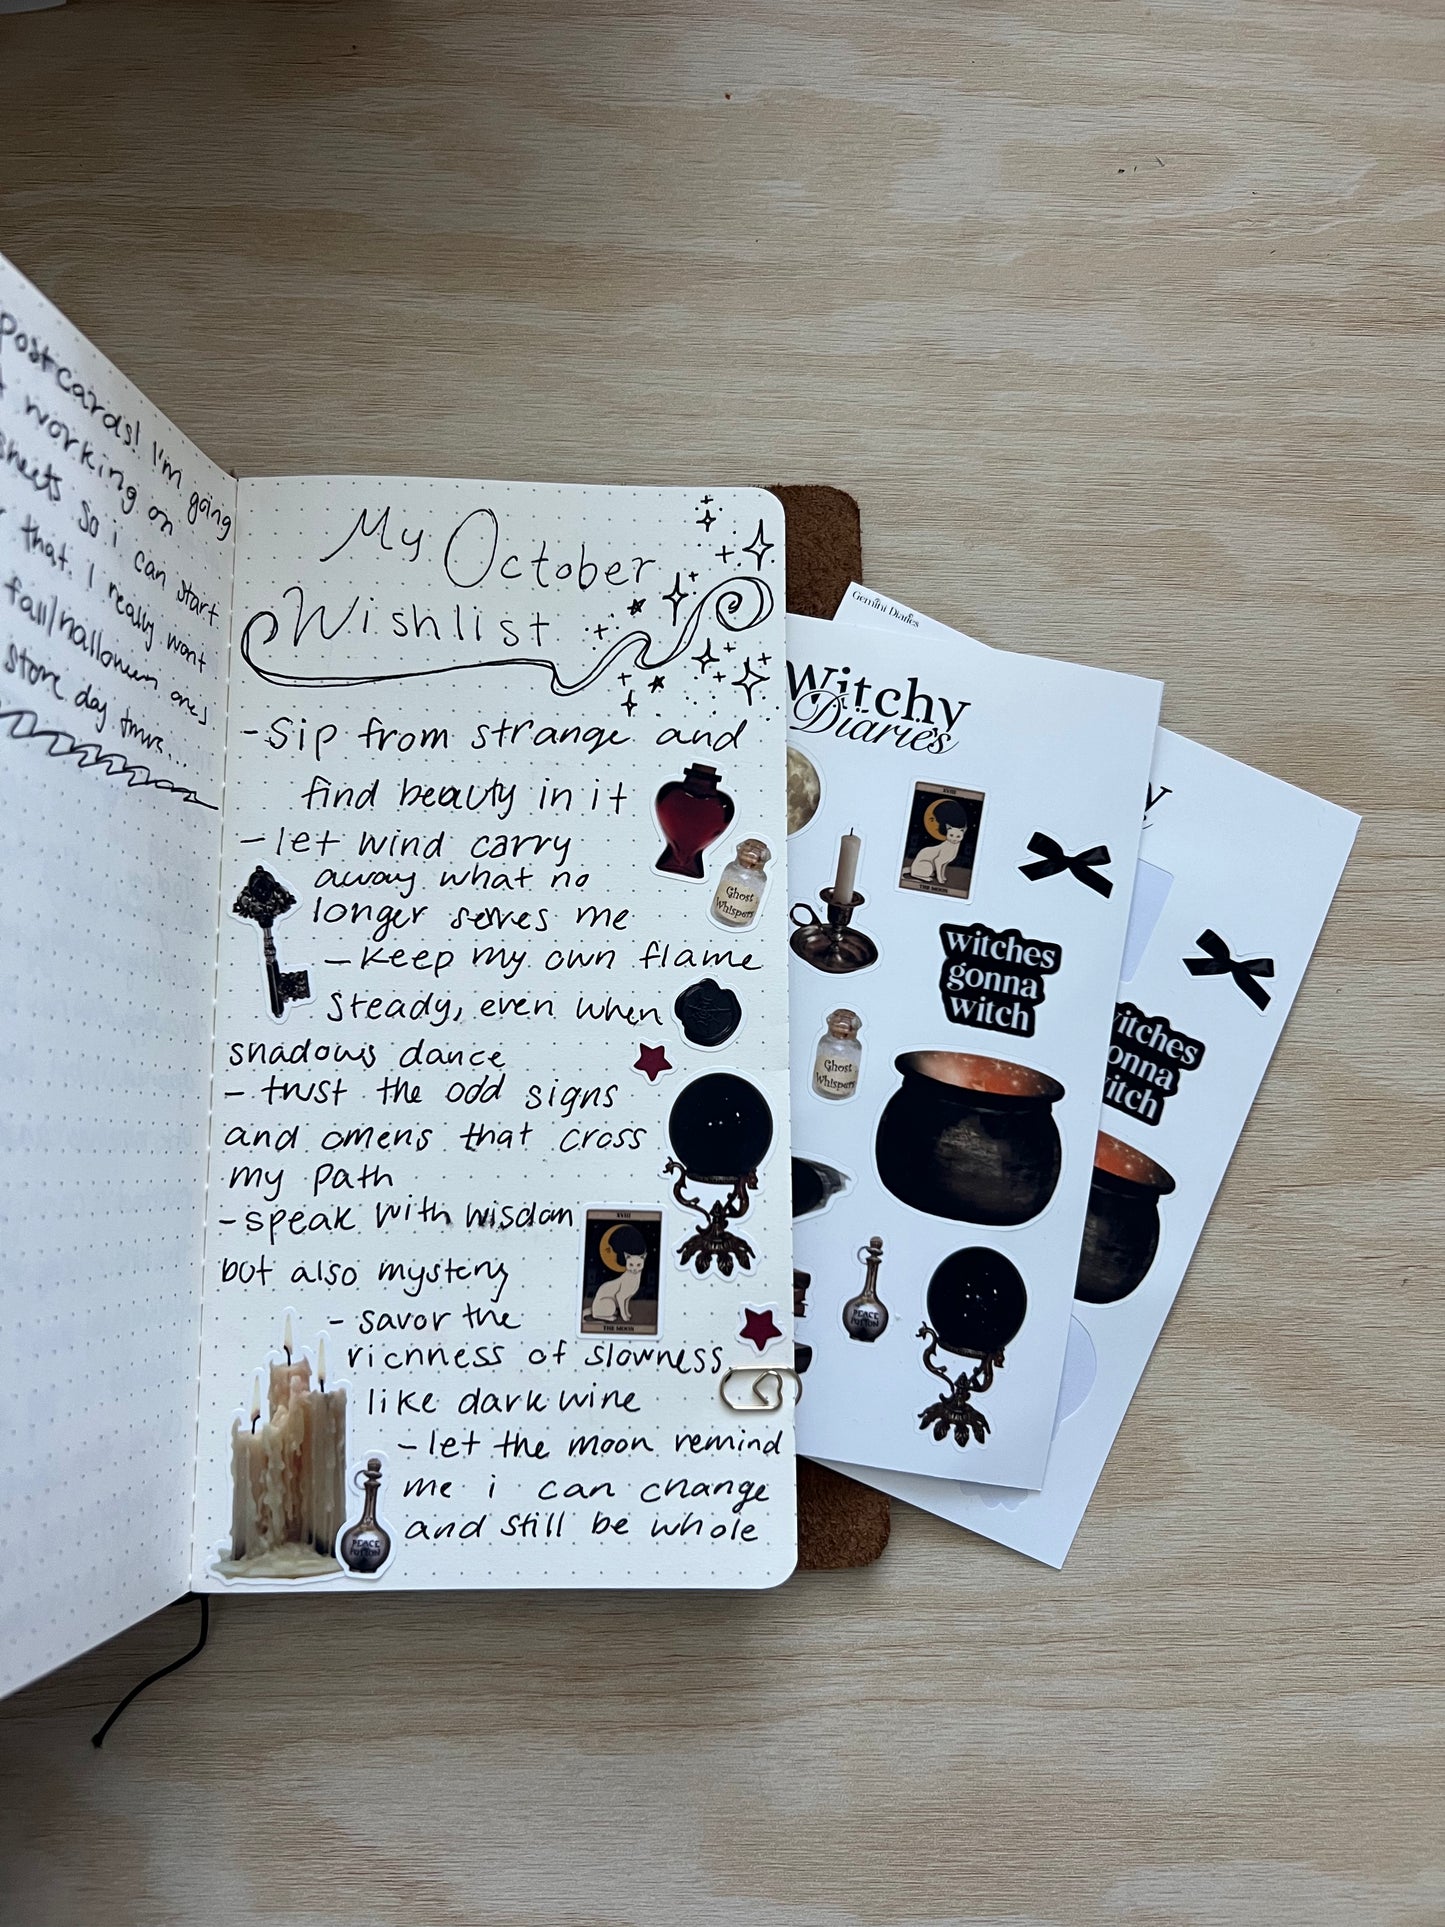 postcards! I'm going
working on
sheets so i can start
that. I really want
fall/halloween ones
store day tmrw...
My October
Wishlist
-Sip from strange and
find beauty in it
-let wind carry
away what no
longer serves me
-keep my own flame
steady, even when
shadows dance
-trust the odd signs
and omens that cross
my path
-speak with wisdom
but also mystery
-savor the
richness of slowness
like dark wine
-let the moon remind
me i can change
and still be whole
Ghost
Whispers
XVIII
THE MOON
PEACE
POTION
Gemini Diaries
Witchy
Diaries
XVIII
THE MOON
witches
gonna
witch
Ghost
Whispers
PEACE
POTION
y
witches
onna
itch